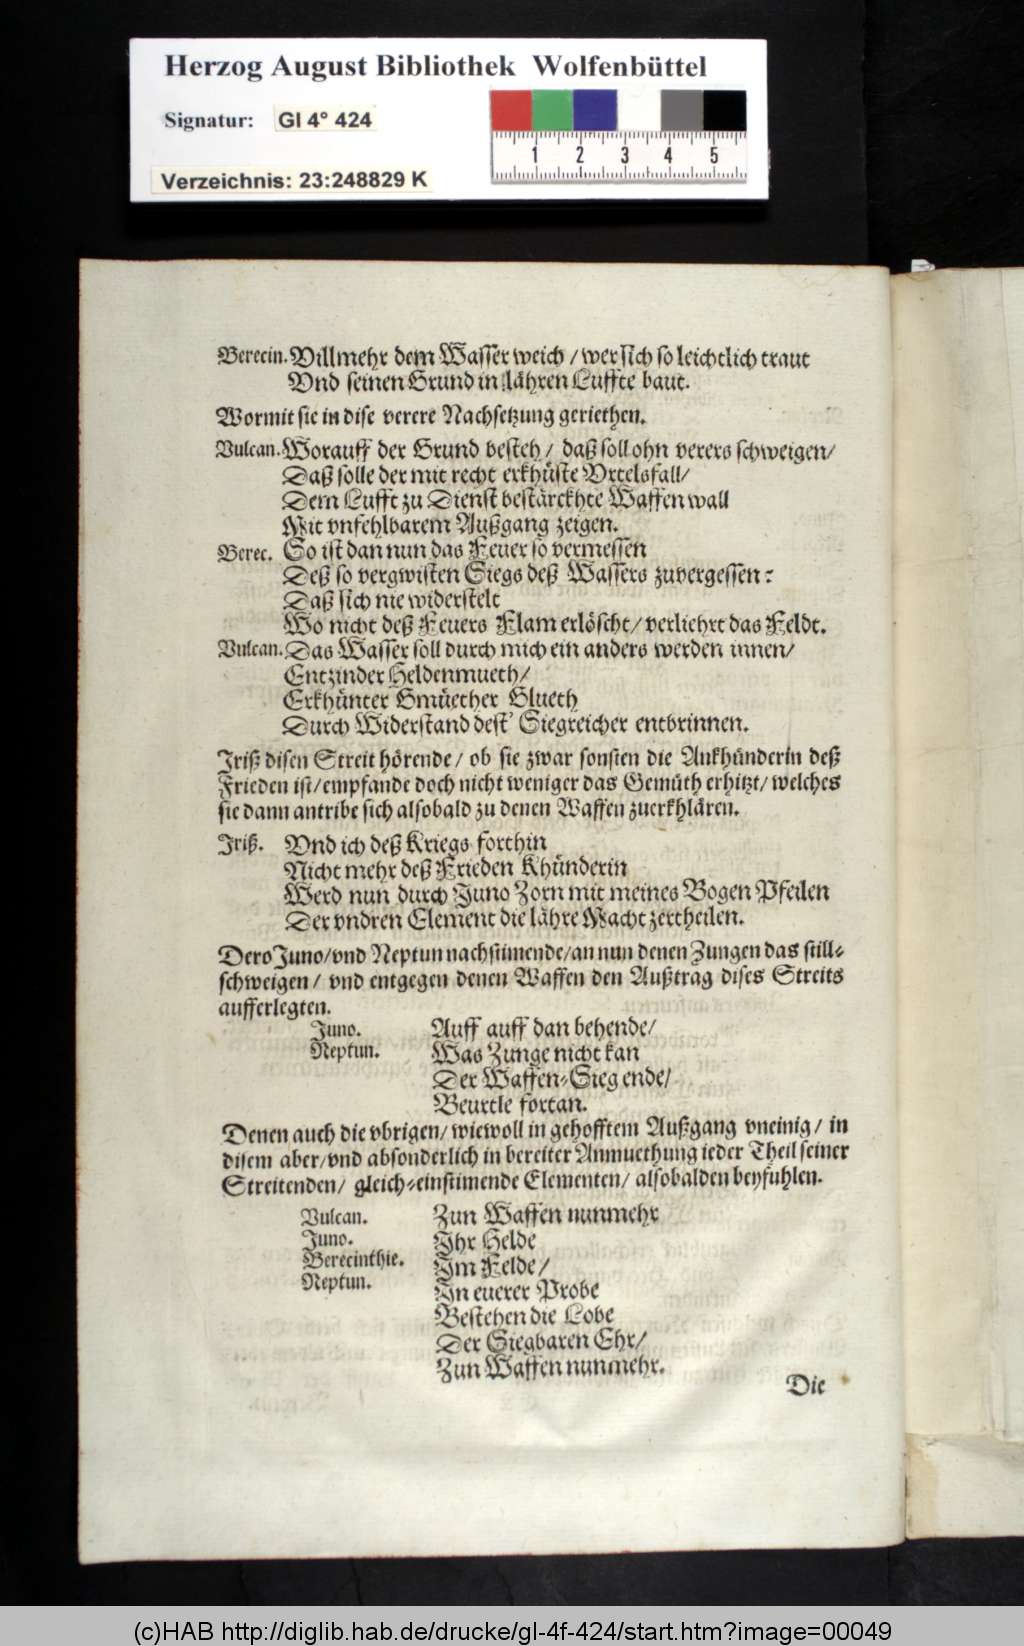 Herzog August Bibliothek Wolfenbüttel
Signatur: Gl 4° 424
1 2 3 4 5
Verzeichnis: 23:248829 K
Berecin. Villmehr dem Wasser weich / wer sich so leichtlich traut
Vnd seinen Grund in lähren Luffte baut.
Wormit sie in dise verere Nachsetzung geriethen.
Vulcan. Worauff der Grund besteh / daß soll ohn verers schweigen /
Daß solle der mit recht erkhüste Vrtelsfall /
Dem Lufft zu Dienst bestärckhte Waffen wall
Mit vnfehlbarem Außgang zeigen.
Berec. So ist dan nun das Feuer so vermessen
Deß so vergwisten Siegs deß Wassers zuvergessen:
Daß sich nie widerstelt
Wo nicht deß Feuers Flam erlöscht / verliehrt das Feldt.
Vulcan. Das Wasser soll durch mich ein anders werden innen /
Entzinder Heldenmueth /
Erkhünter Gmüether Glueth
Durch Widerstand dest' Siegreicher entbrinnen.
Iriß disen Streit hörende / ob sie zwar sonsten die Ankhünderin deß
Frieden ist / empfande doch nicht weniger das Gemüth erhitzt / welches
sie dann antribe sich alsobald zu denen Waffen zuerkhlären.
Iriß. Vnd ich deß Kriegs forthin
Nicht mehr deß Frieden Khünderin
Werd nun durch Juno Zorn mit meines Bogen Pfeilen
Der vndren Element die lähre Macht zertheilen.
Dero Juno / vnd Neptun nachstimende / an nun denen Zungen das still-
schweigen / vnd entgegen denen Waffen den Außtrag dises Streits
aufferlegten.
Juno. Auff auff dan behende /
Neptun. Was Zunge nicht kan
Der Waffen-Sieg ende /
Beurtle fortan.
Denen auch die vbrigen / wiewoll in gehofftem Außgang vneinig / in
disem aber / vnd absonderlich in bereiter Anmuethung ieder Theil seiner
Streitenden / gleich-einstimende Elementen / alsobalden beyfuhlen.
Vulcan. Zun Waffen nunmehr
Juno. Ihr Helde
Berecinthie. Im Felde /
Neptun. In euerer Probe
Bestehen die Lobe
Der Siegbaren Ehr /
Zun Waffen nunmehr.
Die
(c)HAB http://diglib.hab.de/drucke/gl-4f-424/start.htm?image=00049